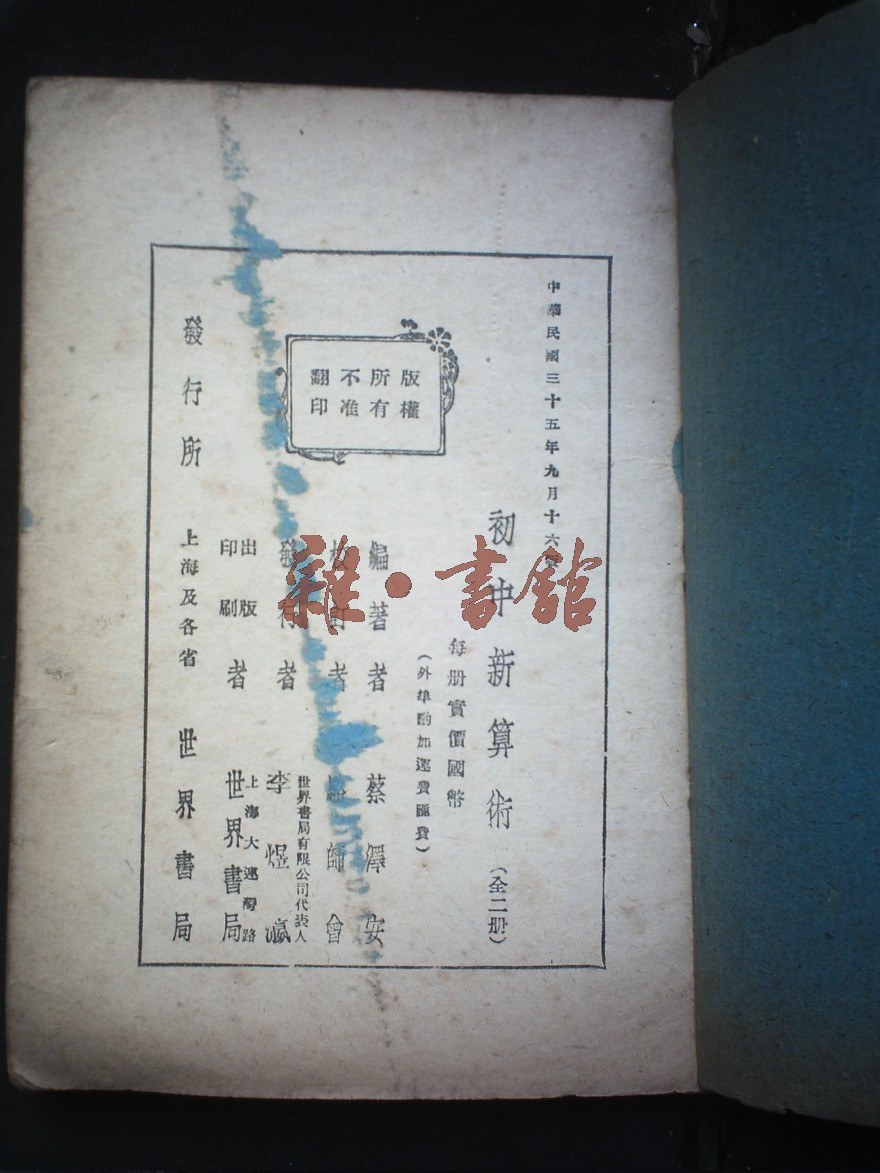 中華民國三十五年九月十六
初中新算術(全二册)
每册實價國幣
(外埠酌加運費匯費)
版權
所有
不准
翻印
編著者 蔡澤安
校訂者 師會
發行者 世界書局有限公司代表人 李煜瀛
出版印刷者 上海大連灣路 世界書局
發行所 上海及各省 世界書局
雜·書館